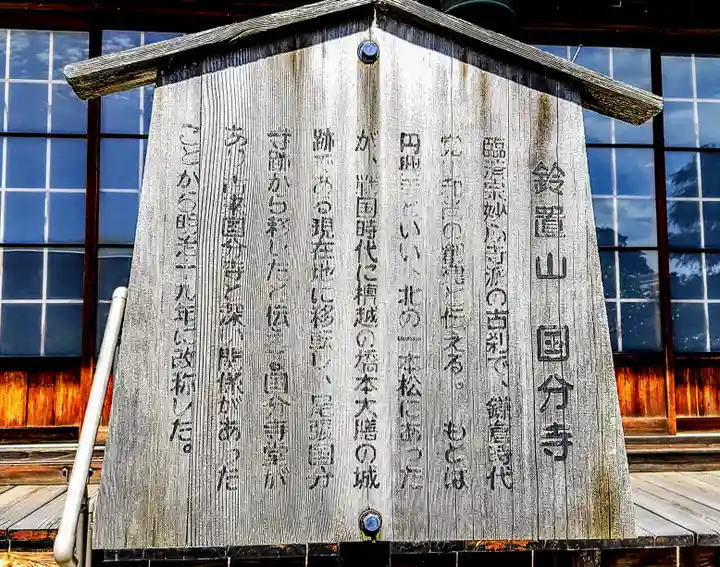 鈴置山 国分寺
臨済宗妙心寺派の古刹で、鎌倉時代
の創建と伝える。 もとは
円興寺といい、北の一本松にあった
が、戦国時代に檀越の橋本大膳の城
跡である現在地に移転し、尾張国分
寺跡から移したと伝える国分寺堂が
あり、尾張国分寺と深い関係があった
ことから明治十九年に改称した。